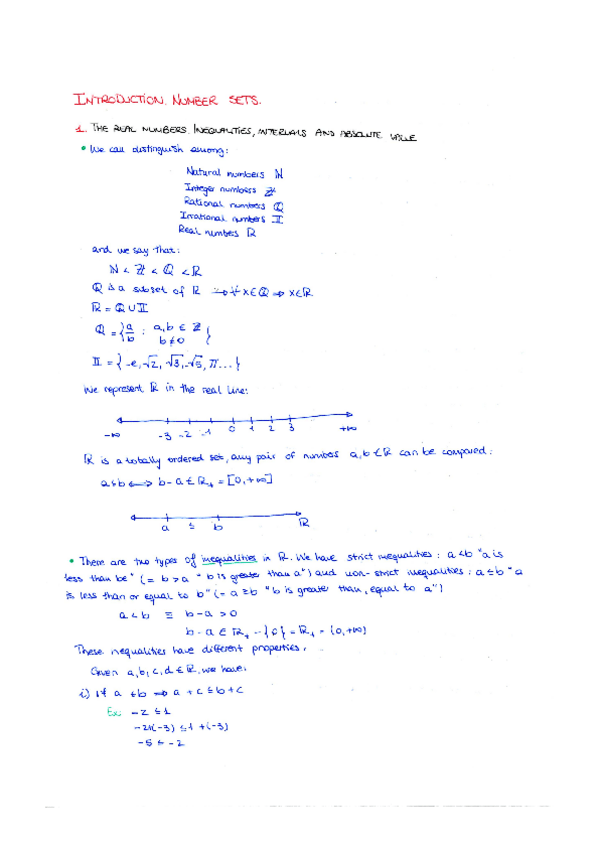 INTRODUCTION. NUMBER SETS.
1. THE REAL NUMBERS. INEQUALITIES, INTERVALS AND ABSOLUTE VALUE
• We can distinguish among:
Natural numbers ℕ
Integer numbers ℤ
Rational numbers ℚ
Irrational numbers 𝕀
Real numbers ℝ
and we say that:
ℕ < ℤ < ℚ < ℝ
ℚ is a subset of ℝ → ∀ x ∈ ℚ ⇒ x ∈ ℝ
ℝ = ℚ ∪ 𝕀
ℚ = { a/b : a, b ∈ ℤ b ≠ 0 }
𝕀 = { -e, √2, √3, -√5, π ... }
We represent ℝ in the real line:
-∞ -3 -2 -1 0 1 2 3 +∞
ℝ is a totally ordered set, any pair of numbers a, b ∈ ℝ can be compared:
a ≤ b ⟷ b - a ∈ ℝ₊ = [0, +∞]
a ≤ b ℝ
• There are two types of inequalities in ℝ. We have strict inequalities: a < b "a is
less than be" (= b > a "b is greater than a") and non-strict inequalities: a ≤ b "a
is less than or equal to b" (= a ≥ b "b is greater than, equal to a")
a < b ≡ b - a > 0
b - a ∈ ℝ₊ - {0} = ℝ₊ = (0, +∞)
These inequalities have different properties.
Given a, b, c, d ∈ ℝ, we have:
i) If a ≤ b ⇒ a + c ≤ b + c
Ex: -2 ≤ 1
-2+(-3) ≤ 1 + (-3)
-5 ≤ -2